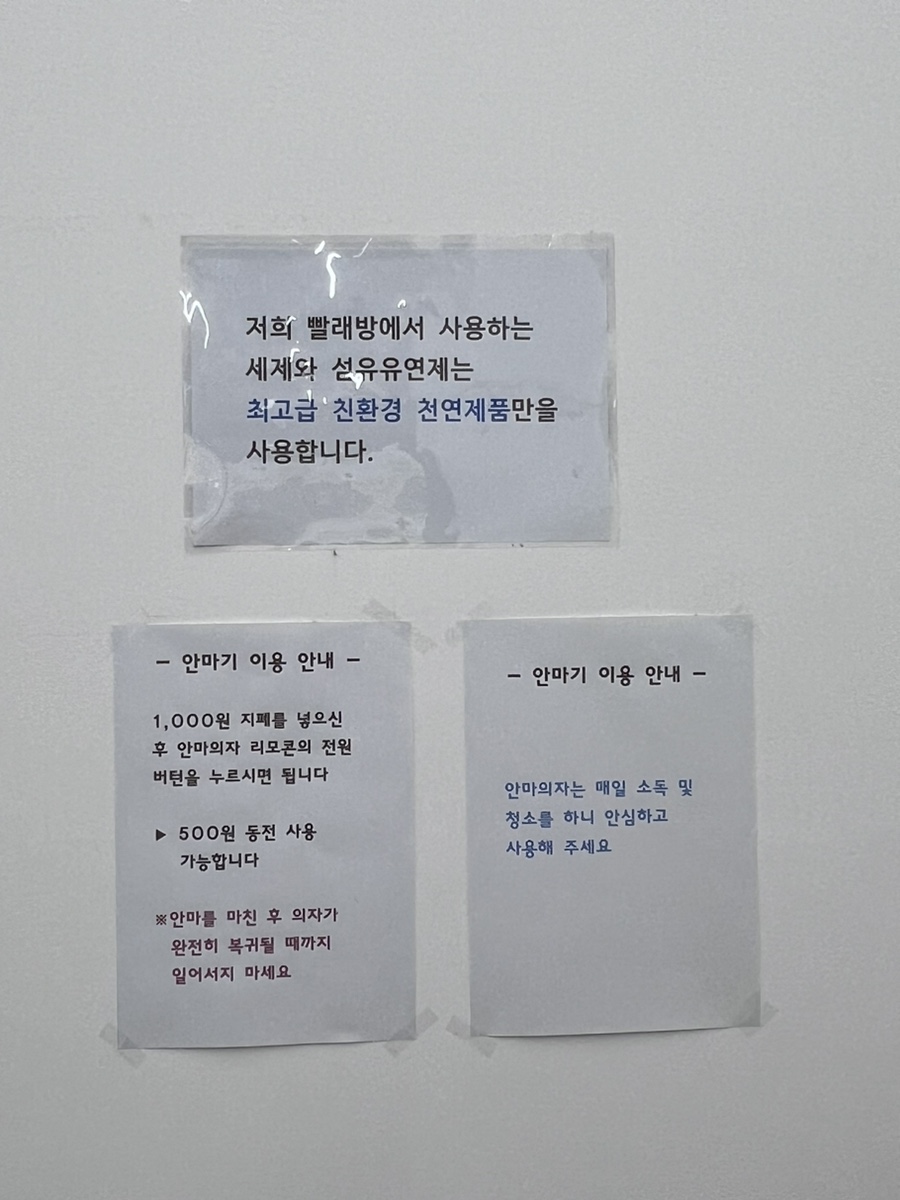 저희 빨래방에서 사용하는
세제와 섬유유연제는
최고급 친환경 천연제품만을
사용합니다.
- 안마기 이용 안내 -
1,000원 지폐를 넣으신
후 안마의자 리모콘의 전원
버턴을 누르시면 됩니다
▶ 500원 동전 사용
가능합니다
※안마를 마친 후 의자가
완전히 복귀될 때까지
일어서지 마세요
- 안마기 이용 안내 -
안마의자는 매일 소독 및
청소를 하니 안심하고
사용해 주세요